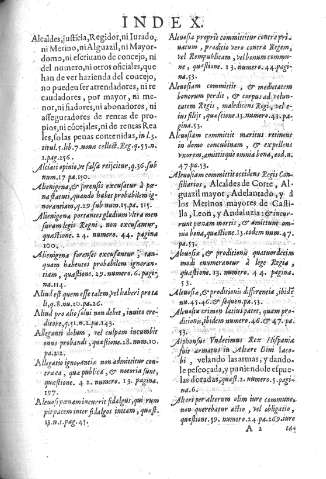 INDEX.
Alcaldes, justicia, Regidor, ni Iurado,
ni Merino, ni Alguazil, ni Mayor-
domo, ni escriuano de concejo, ni
del numero, ni otros oficiales, que
han de ver hazienda del concejo,
no pueden ser arrendadores, ni re
caudadores, por mayor, ni me-
nor, ni fiadores, ni abonadores, ni
asseguradores de rentas de pro-
pios, ni cõcejales, ni de rentas Rea
les, so las penas contenidas, in l. 5.
pag. 256.
Alciati opinio, vt falsa reijcitur, q. 36. sub
num. 17. pa. 150.
Alienigena & forensis excusatur à pœ
na statuti, quando habet probabilem ig-
norantiam, q. 29. sub num. 15. pa. 115.
Alienigena portantes gladium vltra men
suram legis Regni, non excusamur,
quæstione. 24. numero. 44. pagina
100.
Alienigena forensis excusatur,
quatenus habent probabilem ignoran-
tiam, quæstione. 29. numero. 6. pagi-
na. 114.
Aliud est quem esse talem, vel haberi pro ta
li, q. 8. num. 10. pa. 26.
Aliud pro alio solui non debet, inuito cre-
ditore, q. 51. n. 2. pa. 243.
Alleganti dolum, vel culpam incumbit
onus probandi, quæstione. 28. num. 10.
pa. 112.
Allegatio ignorantiæ non admittitur con-
tra ea, quæ publica, & notoria sunt,
quæstione. 42. numero. 13. pagina.
187.
Aleuosus pœnam meretur fidalgus, qui rum
pit pacem inter fidalgos initam, quæst.
13. n. 1. pag. 45.
Aleuosia proprie committitur contra pri
uatum, proditio vero contra Regem,
vel Rempublicam, vel bonum commu-
ne, quæstione. 13. numero. 44. pagina.
53.
Aleuosiam committit,
feminam perdit, & corpus ad volun-
tatem Regis, maledicens Regi, vel
ius filijs, quæstione. 13. numero. 43. pagi-
na. 53.
Aleuosiam committit maritus retinens
in domo concubinam, & expellens
vxorem, amittitque omnia bona, eod. n.
47. pa. 53.
Aleuosiam committit occidens Regis Can-
silliarios, Alcaldes de Corte, Al-
guazil mayor, Adelantado, y â
los Merinos mayores de Casti-
lla, Leon, y Andaluzia: & incur-
runt pœnam mortis, & amittunt omnia
bona, quæstione. 13. eodem num. 47.
pa. 53.
Aleuosia, & proditionis quatuordecim
modi enumerantur à lege Regia,
quæstione. 13. numero. 44. pagina.
53.
Aleuosiæ, & proditionis differentia, ibidẽ
nu. 45. 46. & sequen. pa. 53.
Aleuosiæ crimen latius patet, quam pro
ditionis, ibidem numero. 46. & 47. pa.
53.
Alphonsus Vndecimus Rex Hispaniæ
fuit armatus in Altare Diui Iaco
bi, velando las armas, y dando-
le pescoçada, y poniendole espue-
las doradas, quæst. 2. numero. 5. pagi-
na. 6.
Alteri per alterum olim iure communi,
non quærebatur actio, vel obligatio,
quæstione. 59. numero. 24. pa. 269. sed iure
A 2